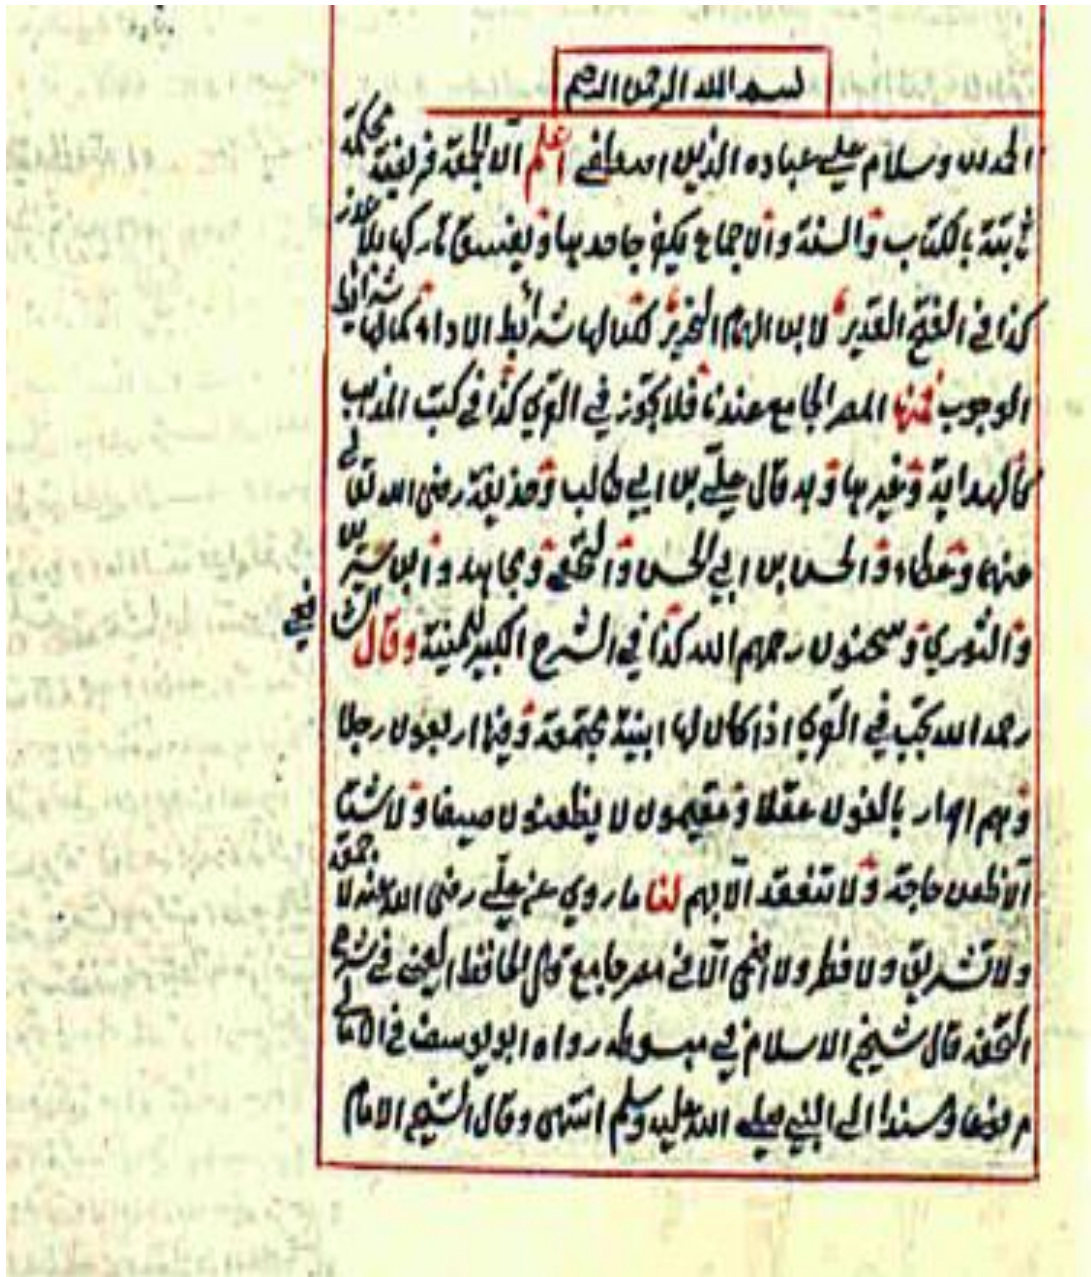 بسم الله الرحمن الرحيم
الحمد لله وسلام علي عباده الذين اصطفي اعلم ان الجمعة فريضة محكمة
ثابتة بالكتاب والسنة والاجماع يكفر جاحدها ويفسق تاركها بلا عذر
كذا في الفتح القدير لابن الهمام النحرير لكن لها شرائط الاداء كما لها شرائط
الوجوب فمنها المصر الجامع عندنا فلا يجوز في القري كذا في كتب المذهب
كالهداية وغيرها وبه قال علي بن ابي طالب وحذيفة رضي الله تعالي
عنهما وعطاء والحسن بن ابي الحسن والنخعي ومجاهد وابن سيرين
والثوري وسحنون رحمهم الله كذا في الشرح الكبير للمنية وقال الشا
فعي
رحمه الله يجب في القري اذا كان لها ابنية مجتمعة وفيها اربعون رجلا
وهم احرار بالغون عقلا ومقيمون لا يظعنون صيفا ولا شتا
الا ظعن حاجة ولا تنعقد الا بهم لنا ما روي عن علي رضي الله عنه لا جمعة
ولا تشريق ولا فطر ولا اضحي الا في مصر جامع قال الحافظ العيني في شرح
التحفة قال شيخ الاسلام في مبسوطه رواه ابو يوسف في الامالي
مرفوعا ومسندا الي النبي صلي الله عليه وسلم انتهي وقال الشيخ الامام